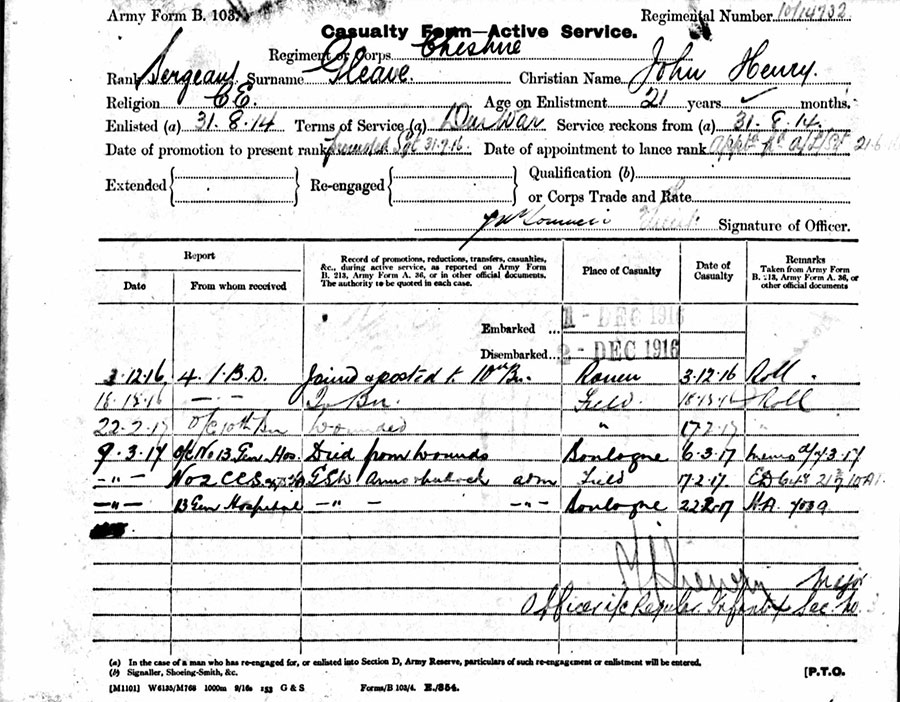 Army Form B. 103. Regimental Number 10/14732
Casualty Form—Active Service.
Regiment or Corps Cheshire
Rank Sergeant Surname Gleave. Christian Name John Henry.
Religion C.E. Age on Enlistment 21 years ✓ months.
Enlisted (a) 31.8.14 Terms of Service (a) Dur War Service reckons from (a) 31.8.14.
Date of promotion to present rank Sgt 31.7.16. Date of appointment to lance rank
Extended Re-engaged Qualification (b)
or Corps Trade and Rate
Signature of Officer.
Report Record of promotions, reductions, transfers, casualties, &c., during active service, as reported on Army Form B. 213, Army Form A. 36, or in other official documents. The authority to be quoted in each case. Place of Casualty Date of Casualty Remarks Taken from Army Form B. 213, Army Form A. 36, or other official documents
Date From whom received
Embarked ... 1 - DEC 1916
Disembarked... 2 - DEC 1916
3.12.16 4. I.B.D. Joined & posted to 10th Bn. Rouen 3.12.16 Roll.
—"— Bn. Field. Roll
22.2.17 O/C 10th Bn Wounded " 17.2.17 "
9.3.17 O/C No 13 Gen Hos. Died from wounds Boulogne 6.3.17 7.3.17
—"— No 2 CCS GSW Arms & buttock adm Field 17.2.17
—"— 13 Gen Hospital —"— —"— Boulogne 22.2.17 H.A. 7039
Major
Officer i/c Regular Infantry Sec No. 3.
(a) In the case of a man who has re-engaged for, or enlisted into Section D, Army Reserve, particulars of such re-engagement or enlistment will be entered.
(b) Signaller, Shoeing-Smith, &c. [P.T.O.
[M1101] W6135/M768 1000m 9/16s 153 G & S Forms/B 103/4. E./854.